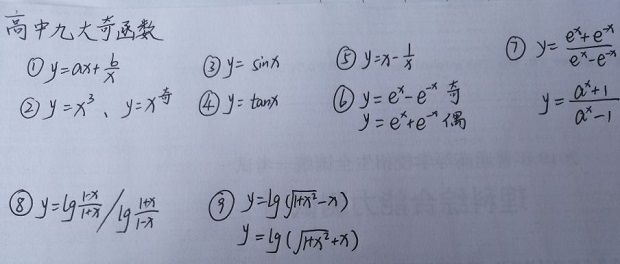 高中九大奇函数
① y=ax+b/x
② y=x³、y=x^奇
③ y=sinx
④ y=tanx
⑤ y=x-1/x
⑥ y=e^x-e^-x 奇
y=e^x+e^-x 偶
⑦ y=(e^x+e^-x)/(e^x-e^-x)
y=(a^x+1)/(a^x-1)
⑧ y=lg (1-x)/(1+x) / lg (1+x)/(1-x)
⑨ y=lg(√(1+x²)-x)
y=lg(√(1+x²)+x)